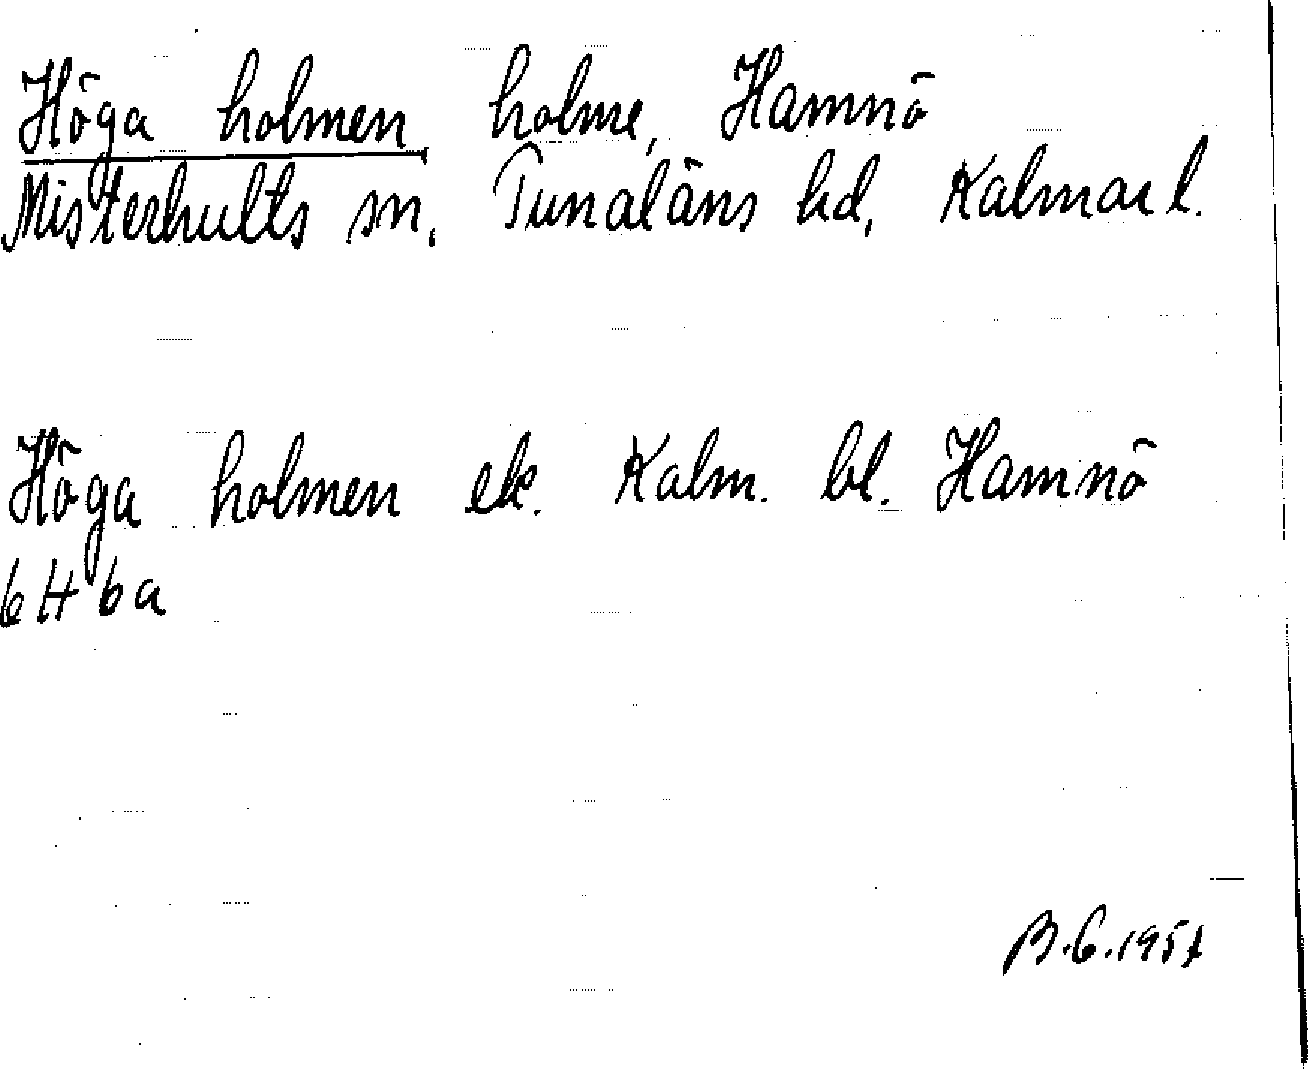 Höga holmen, holme, Hamnö
Misterhults sn. Tunaläns hd, Kalmar l.
Höga holmen ek. Kalm. bl. Hamnö
6H 6a
B.G.1951